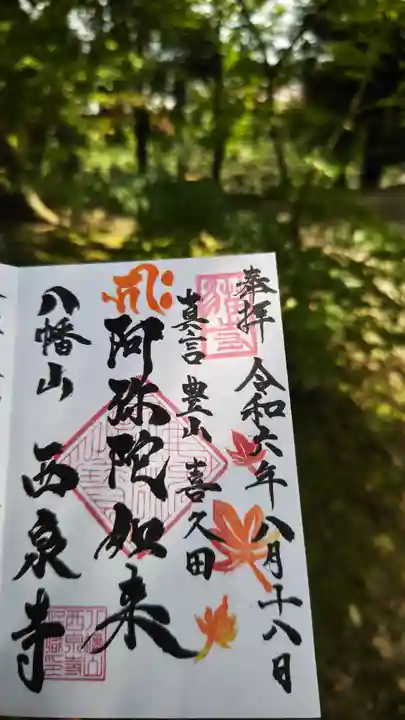 奉拝 令和六年八月十八日
真言 豊山 喜久田
阿弥陀如来
八幡山 西泉寺